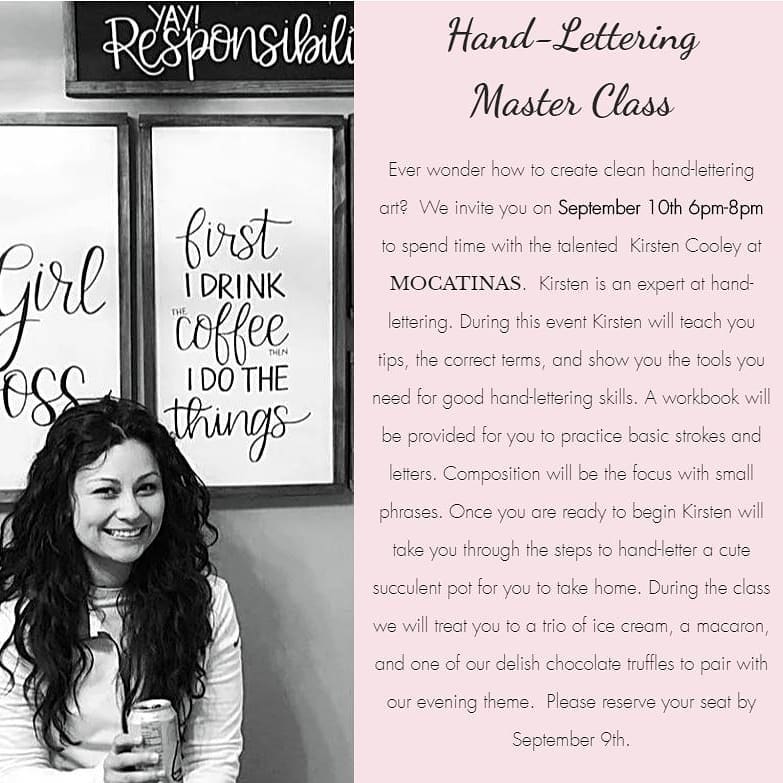 YAY!
Responsibili
Girl
oss
first
I DRINK
THE
coffee
THEN
I DO THE
things
Hand-Lettering
Master Class
Ever wonder how to create clean hand-lettering
art?  We invite you on September 10th 6pm-8pm
to spend time with the talented  Kirsten Cooley at
MOCATINAS.  Kirsten is an expert at hand-
lettering. During this event Kirsten will teach you
tips, the correct terms, and show you the tools you
need for good hand-lettering skills. A workbook will
be provided for you to practice basic strokes and
letters. Composition will be the focus with small
phrases. Once you are ready to begin Kirsten will
take you through the steps to hand-letter a cute
succulent pot for you to take home. During the class
we will treat you to a trio of ice cream, a macaron,
and one of our delish chocolate truffles to pair with
our evening theme.  Please reserve your seat by
September 9th.